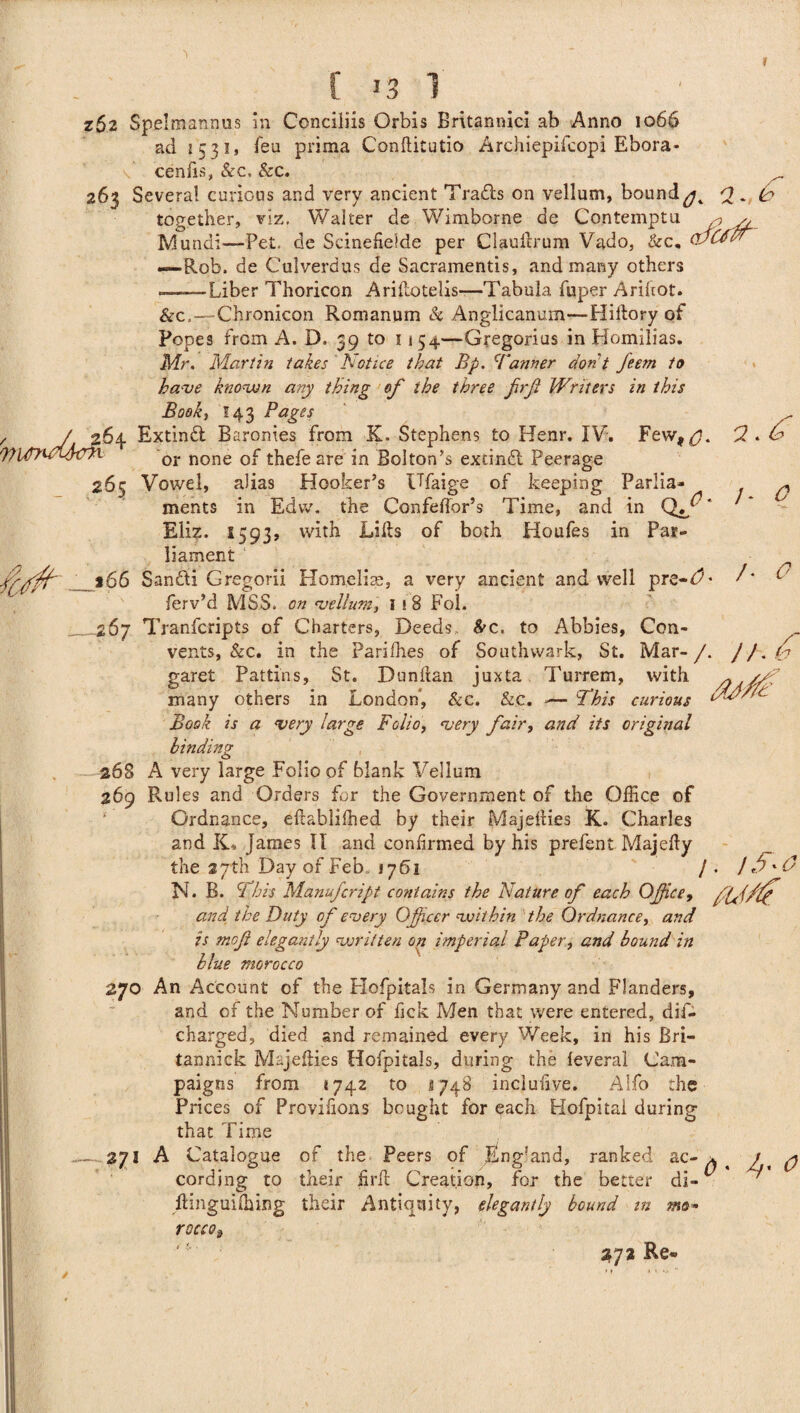 [ 13 ]
262 Spelmannus in Conciliis Orbis Britannici ab Anno 1066
ad 1531, ſeu prima Conſtitutio Archiepiſcopi Ebora-
cenſis, &c. &c.
263 Several curious and very ancient Tracts on vellum, bound 0. 2. 6
together, viz. Walter de Wimborne de Contemptu
Mundi—Pet. de Scinefielde per Clauſtrum Vado, &c.
—Rob. de Culverdus de Sacramentis, and many others
——Liber Thoricon Ariſtotelis—Tabula ſuper Ariſtot.
&c.—Chronicon Romanum & Anglicanum—Hiſtory of
Popes from A. D. 39 to 1154—Gregorius in Homilias.
Mr. Martin takes Notice that Bp. Tanner don't ſeem to
have known any thing of the three firſt Writers in this
Book, 143 Pages
264 Extinct Baronies from K. Stephens to Henr. IV. Few, 0. 2. 6
or none of theſe are in Bolton's extinct Peerage
265 Vowel, alias Hooker's Uſaige of keeping Parlia-
ments in Edw. the Confeſſor's Time, and in Q. 0. 1. 0
Eliz. 1593, with Liſts of both Houſes in Par-
liament
266 Sancti Gregorii Homeliæ, a very ancient and well pre- 0. 1. 0
ſerv'd MSS. on vellum, 118 Fol.
267 Tranſcripts of Charters, Deeds, &c. to Abbies, Con-
vents, &c. in the Pariſhes of Southwark, St. Mar- 1. 11. 6
garet Pattins, St. Dunſtan juxta Turrem, with
many others in London, &c. &c. — This curious
Book is a very large Folio, very fair, and its original
binding
268 A very large Folio of blank Vellum
269 Rules and Orders for the Government of the Office of
Ordnance, eſtabliſhed by their Majeſties K. Charles
and K. James II and confirmed by his preſent Majeſty
the 27th Day of Feb. 1761 1. 15. 0
N. B. This Manuſcript contains the Nature of each Office,
and the Duty of every Officer within the Ordnance, and
is moſt elegantly written on imperial Paper, and bound in
blue morocco
270 An Account of the Hoſpitals in Germany and Flanders,
and of the Number of ſick Men that were entered, diſ-
charged, died and remained every Week, in his Bri-
tannick Majeſties Hoſpitals, during the ſeveral Cam-
paigns from 1742 to 1748 incluſive. Alſo the
Prices of Proviſions bought for each Hoſpital during
that Time
271 A Catalogue of the Peers of England, ranked ac- 0. 4. 0
cording to their firſt Creation, for the better di-
ſtinguiſhing their Antiquity, elegantly bound in mo-
rocco,
272 Re-